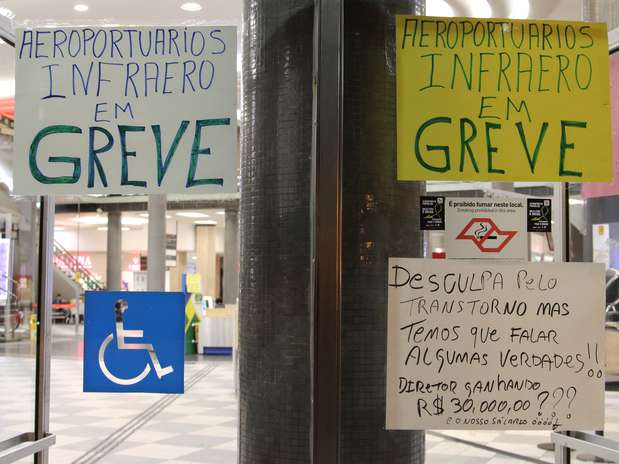 AEROPORTUARIOS
INFRAERO
EM
GREVE
AEROPORTUARIOS
INFRAERO
EM
GREVE
É proibido fumar neste local.
DESCULPA PELO
TRANSTORNO MAS
TEMOS QUE FALAR
ALGUMAS VERDADES!!
DIRETOR GANHANDO
R$ 30,000,00???
E O NOSSO SALÁRIO